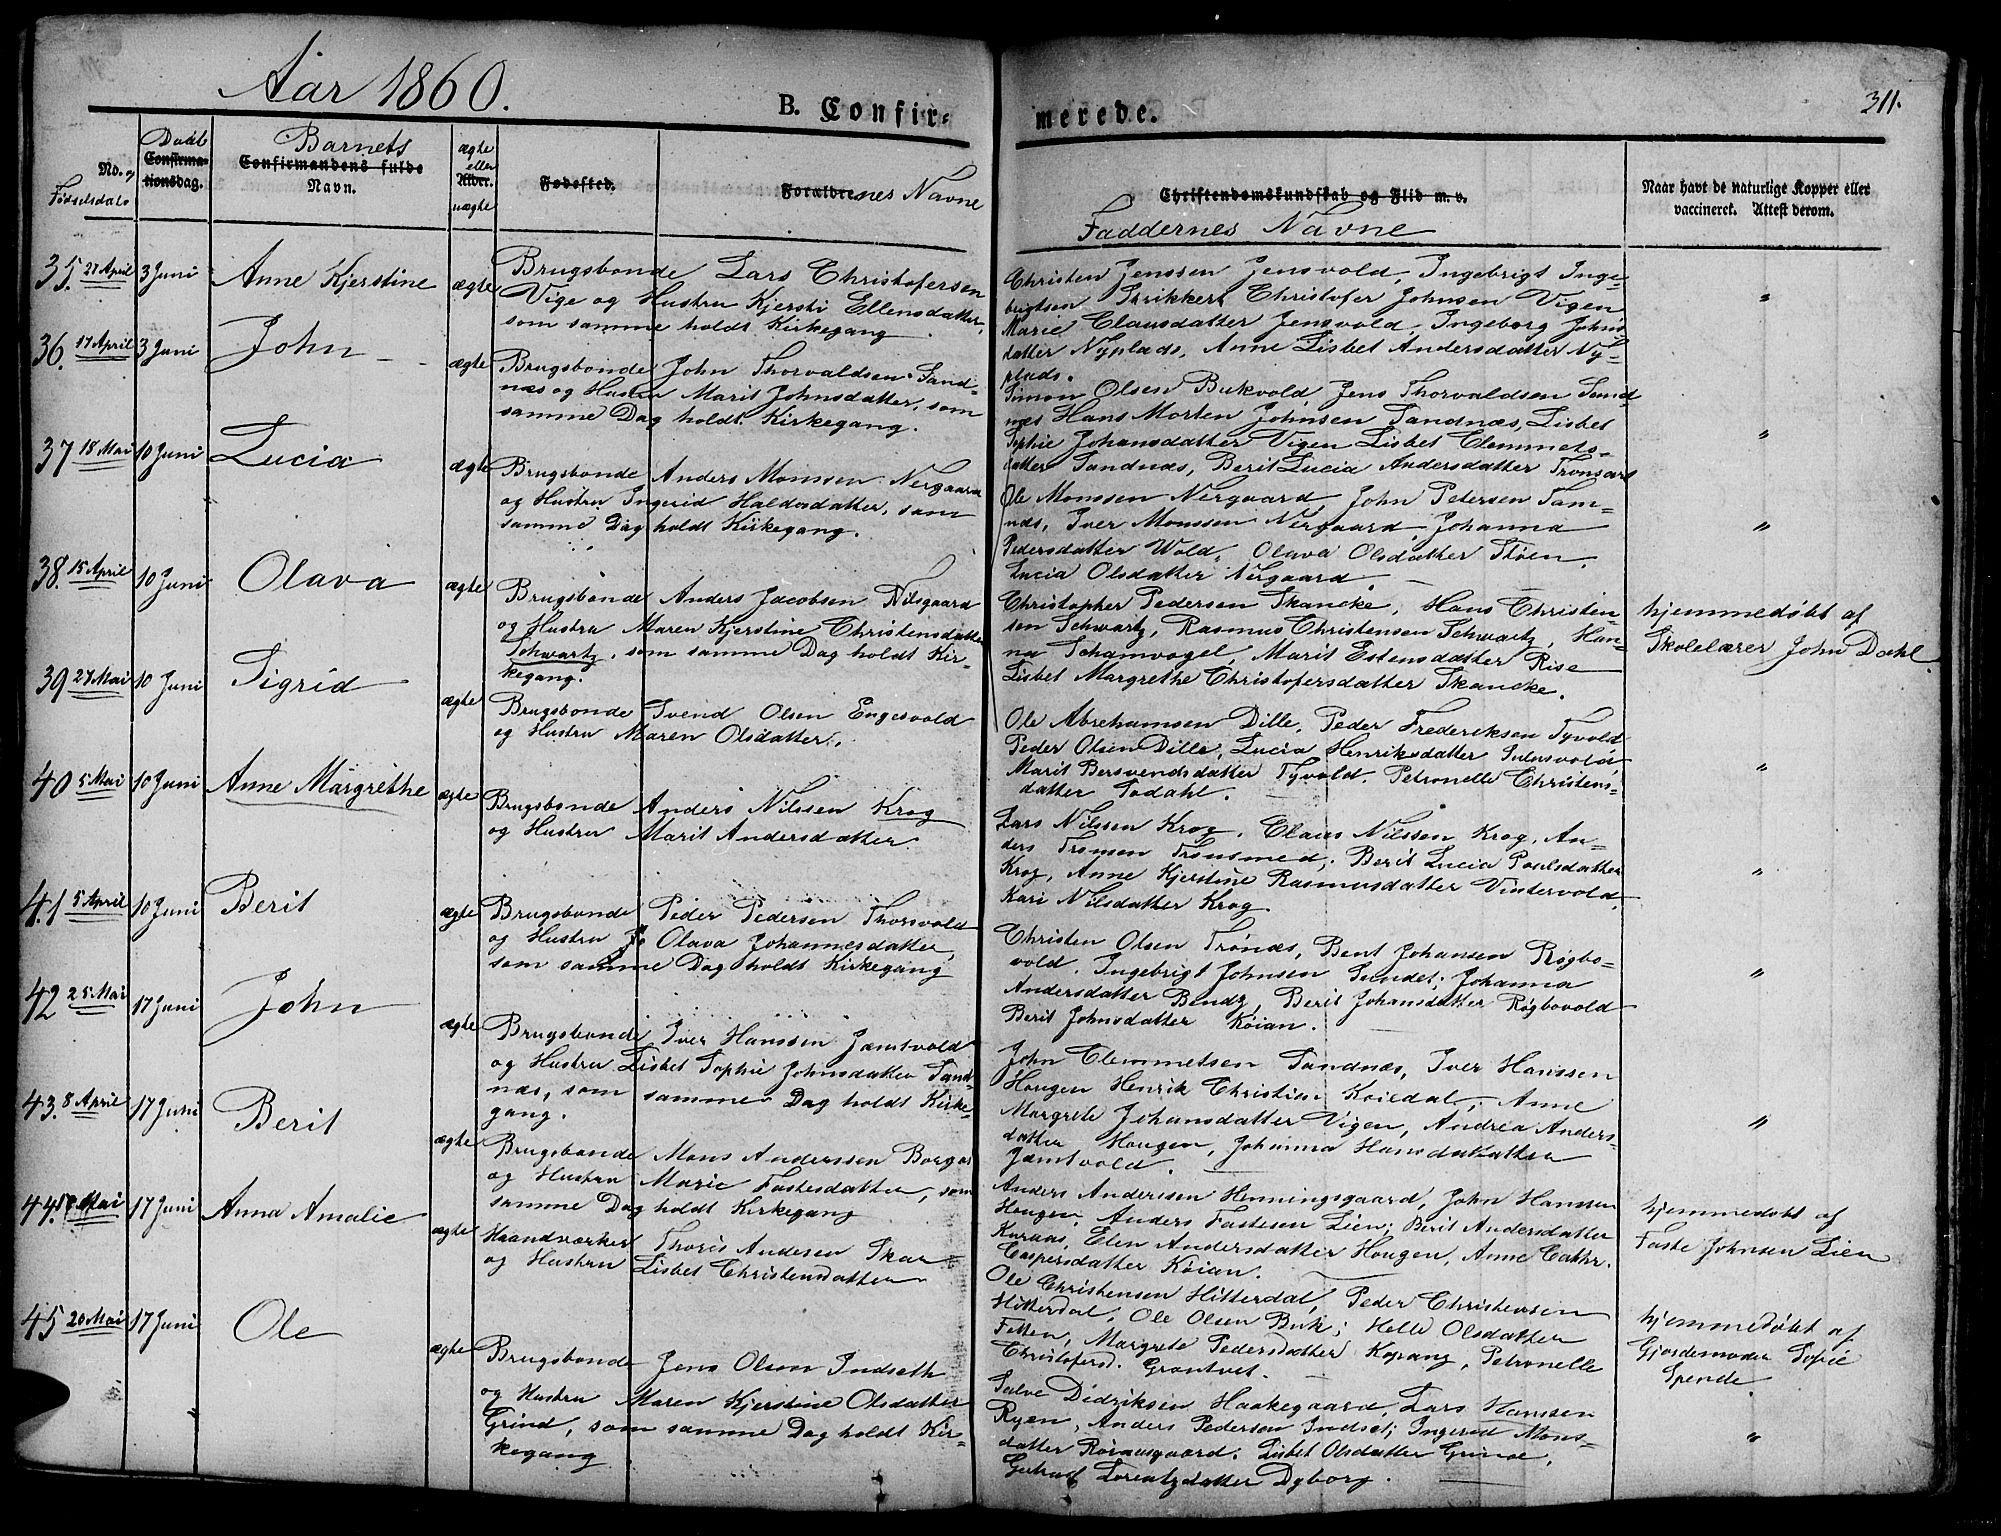 Aar 1860.
B. Confir-
merede.
311.
No. og
Fødselsdato
Daab
Confirma-
tionsdag.
Barnets
Confirmandens fulde
Navn.
ægte
eller
Alder.
uægte
Fødested.
Forældrenes Navne
Christendomskundskab og Flid m. v.
Faddernes Navne
Naar havt de naturlige Kopper eller
vaccineret. Attest derom.
35. 27 April 3 Juni Anne Kjerstine ægte
Brugsbonde Lars Christofersen
Vige og Hustru Kjersti Ellensdatter,
som samme holdt Kirkegang.
Christen Jenssen Jensvold, Ingebrigt Inge-
brigtsen Strikkert Christofer Johnsen Vigen
Marie Clausdatter Jensvold, Ingeborg Johns
datter Nyplads, Anne Lisbet Andersdatter Ny-
plads.
"
36. 17 April 3 Juni John ægte
Brugsbonde John Thorvaldsen Sand-
næs og Hustru Marit Johnsdatter, som
samme Dag holdt Kirkegang.
Simon Olsen Bukvold, Jens Thorvaldsen Sand-
næs Hans Morten Johnsen Sandnæs, Lisbet
Sophie Johansdatter Vigen Lisbet Clemmets-
datter Sandnæs, Berit Lucia Andersdatter Trønsart
"
37 18 Mai 10 Juni Lucia ægte
Brugsbonde Anders Monssen Nergaard
og Hustru Ingerid Haldosdatter, som
samme Dag holdt Kirkegang.
Ole Monssen Nergaard John Petersen Tam-
næs, Iver Monssen Nergaard, Johanna
Pedersdatter Wold, Olava Olsdatter Støen,
Lucia Olsdatter Nergaard.
"
38. 15 April 10 Juni Olava ægte
Brugsbonde Anders Jacobsen Nilsgaard
og Hustru Maren Kjerstine Christensdatter
Schwartz, som samme Dag holdt Kir-
kegang.
Christopher Pedersen Skancke, Hans Christen-
sen Schwartz, Rasmus Christensen Schwartz, Han-
na Schamvogel, Marit Estensdatter Rise
Lisbet Margrethe Christofersdatter Skancke.
hjemmedøbt af
Skolelærer John Dahl
39 27 Mai 10 Juni Sigrid ægte
Brugsbonde Svend Olsen Engesvold
og Hustru Maren Olsdatter.
Ole Abrahamsen Dille, Peder Frederiksen Tyvold
Peder Olsen Dille, Lucia Henriksdatter
Marit Bersvendsdatter Tyvold. Petronelle Christens-
datter Sodahl.
"
40 5 Mai 10 Juni Anne Margrethe ægte
Brugsbonde Anders Nilssen Krog
og Hustru Marit Andersdatter
Lars Nilssen Krog, Claus Nilssen Krog, An-
ders Tronsen Trønsmed, Berit Lucia Poulsdatter
Krog, Anne Kjerstine Rasmusdatter Vintervold,
Kari Nilsdatter Krog.
"
41 5 April 10 Juni Berit ægte
Brugsbonde Peder Pedersen Thorsvold
og Hustru Olava Johannesdatter,
som samme Dag holdt Kirkegang
Christen Olsen Trønæs, Bent Johansen Røgbo-
vold, Ingebrigt Johnsen Sundet, Johanna
Andersdatter Bendz, Berit Johansdatter Røgbovold
Berit Johnsdatter Koian.
"
42 25 Mai 17 Juni John ægte
Brugsbonde Iver Hanssen Jamtvold
og Hustru Lisbet Sophie Johnsdatter Sand-
næs, som samme Dag holdt Kirke-
gang.
John Clemmetsen Sandnæs, Iver Hanssen
Hougen Henrik Christian Koiedal, Anne
Margrete Johansdatter Vigen, Andrea Anders-
datter Hougen, Johanna Hansdatter
Jamtvold.
"
43. 8 April 17 Juni Berit ægte
Brugsbonde Mons Anderssen Borgos
og Hustru Marie Fastesdatter, som
samme Dag holdt Kirkegang
Anders Anderssen Henningsgaard, John Hanssen
Hougen, Anders Fastesen Lien, Berit Andersdatter
Kuraas, Elen Andersdatter Hougen, Anne Cathr.
Caspersdatter Koian.
hjemmedøbt af
Faste Johnsen Lien
44. Mai 17 Juni Anna Amalie ægte
Haandværker Thoris Andersen Skar
og Hustru Lisbet Christensdatter
Ole Christensen Hitterdal, Peder Christensen
Hitterdal, Ole Olsen Buk, Helle Olsdatter
Feten, Margrete Pedersdatter Kopang, Petronelle
Christofersd. Grøntvet.
hjemmedøbt af
Gjordemoder Sofie
Spende.
45 20 Mai 17 Juni Ole ægte
Brugsbonde Jens Olsen Indseth
og Hustru Maren Kjerstine Olsdatter
Grind, som samme Dag holdt Kir-
kegang
Salve Didriksen Haakegaard, Lars Hanssen
Ryen, Anders Pedersen Indset, Ingerid Mons-
datter Røraasgaard, Lisbet Olsdatter Grind,
Gertrud Lorentzdatter Dyborg.
"